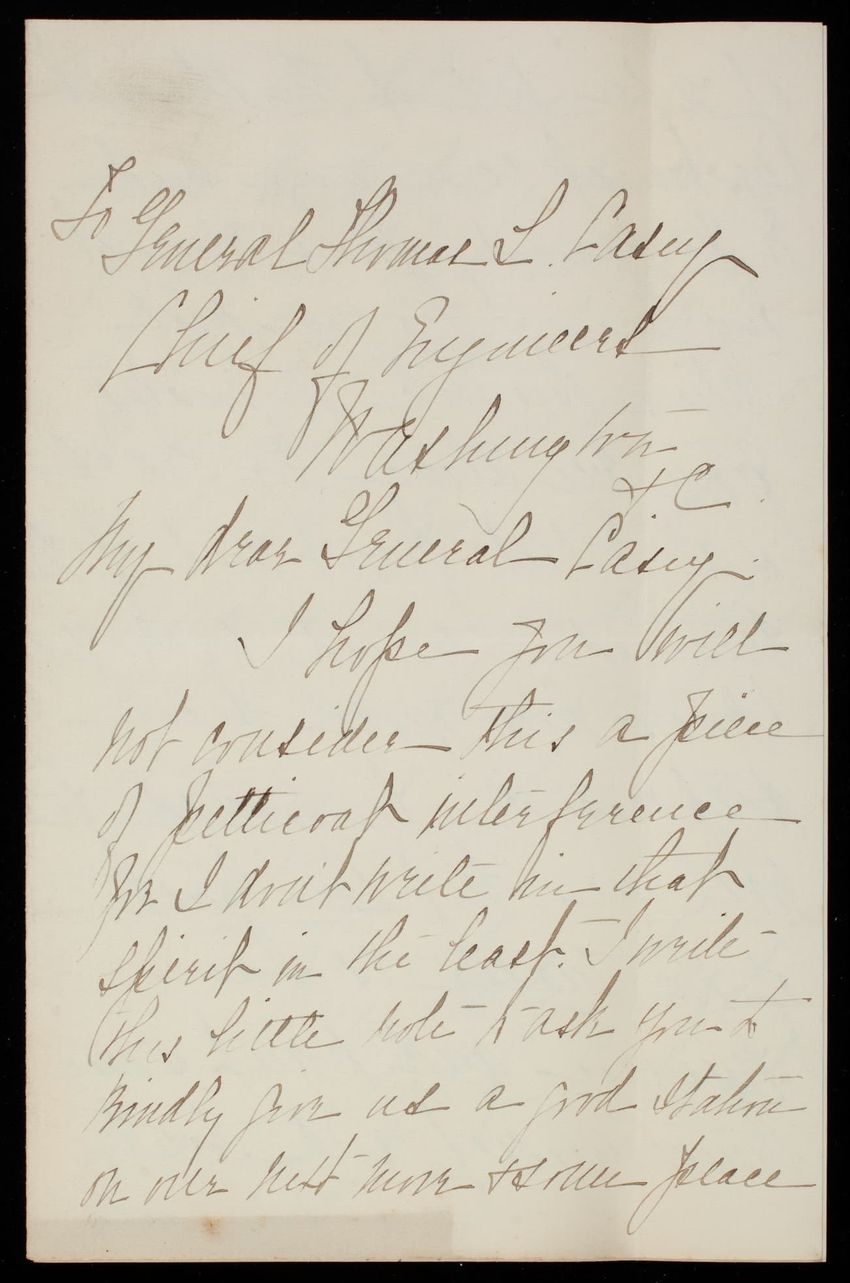 To General Thomas L. Casey
Chief of Engineers
Washington
D C.
My dear General Casey.
I hope you will
not consider this a piece
of petticoat interference
for I don't write in that
spirit in the least. I write
this little note to ask you to
kindly give us a good station
on our next move & some place